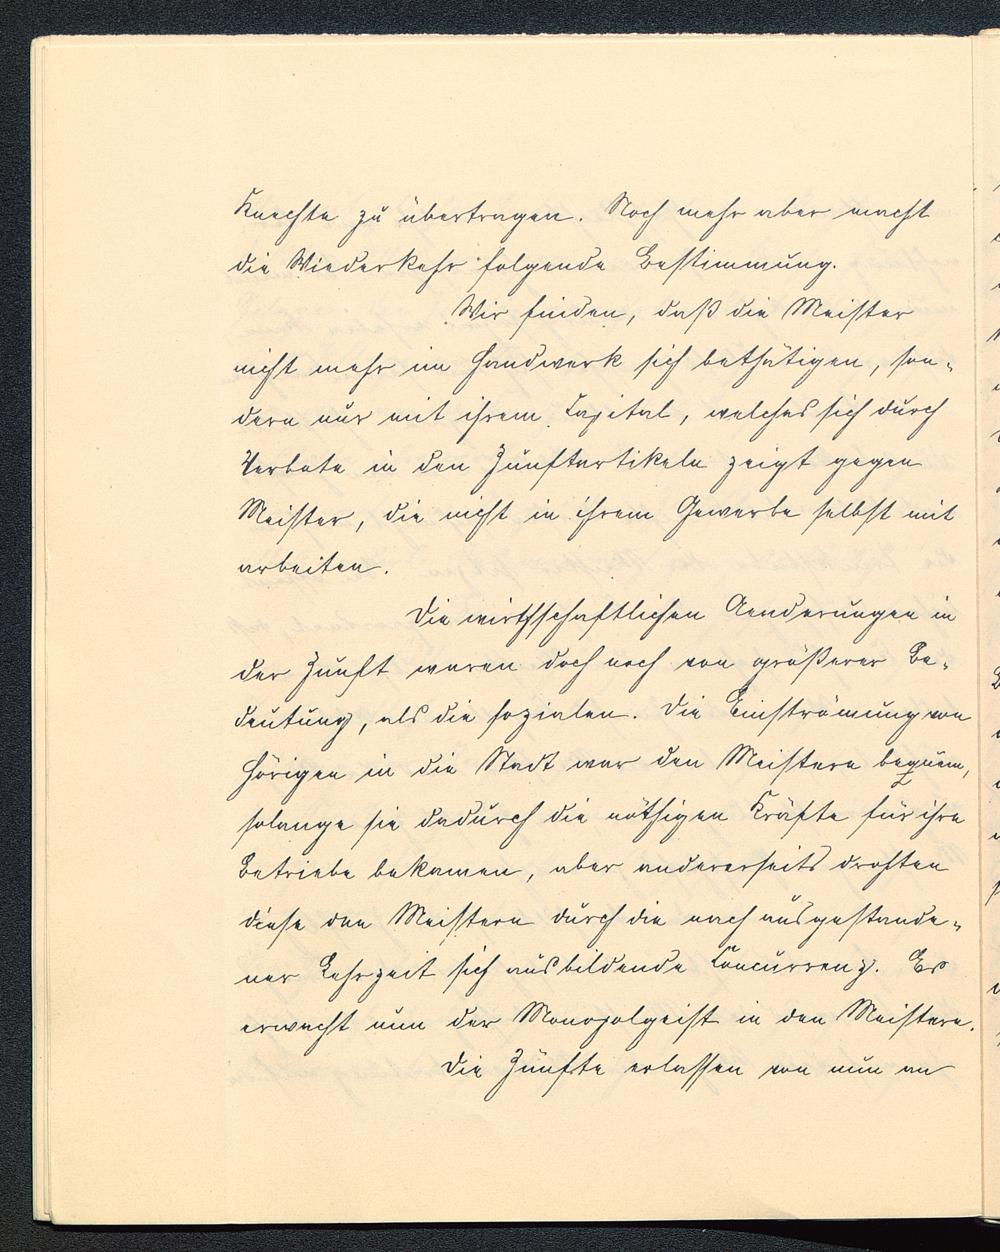 Knechte zu übertragen. Noch mehr aber macht
die Wiederkehr folgende Bestimmung.
Wir finden, daß die Meister
nicht mehr im Handwerk sich bethätigen, son-
dern nur mit ihrem Capital, welches sich durch
Verbote in den Zunftartikeln zeigt gegen
Meister, die nicht in ihrem Gewerbe selbst mit
arbeiten.
Die wirthschaftlichen Aenderungen in
der Zunft waren doch noch von größerer Be-
deutung, als die sozialen. Die Einströmung von
Hörigen in die Stadt war den Meistern bequem,
solange sie dadurch die nöthigen Kräfte für ihre
Betriebe bekamen, aber andererseits drohten
diese den Meistern durch die nach ausgestande-
ner Lehrzeit sich ausbildende Concurrenz. Es
erwacht nun der Monopolgeist in den Meistern.
Die Zünfte erlassen von nun an